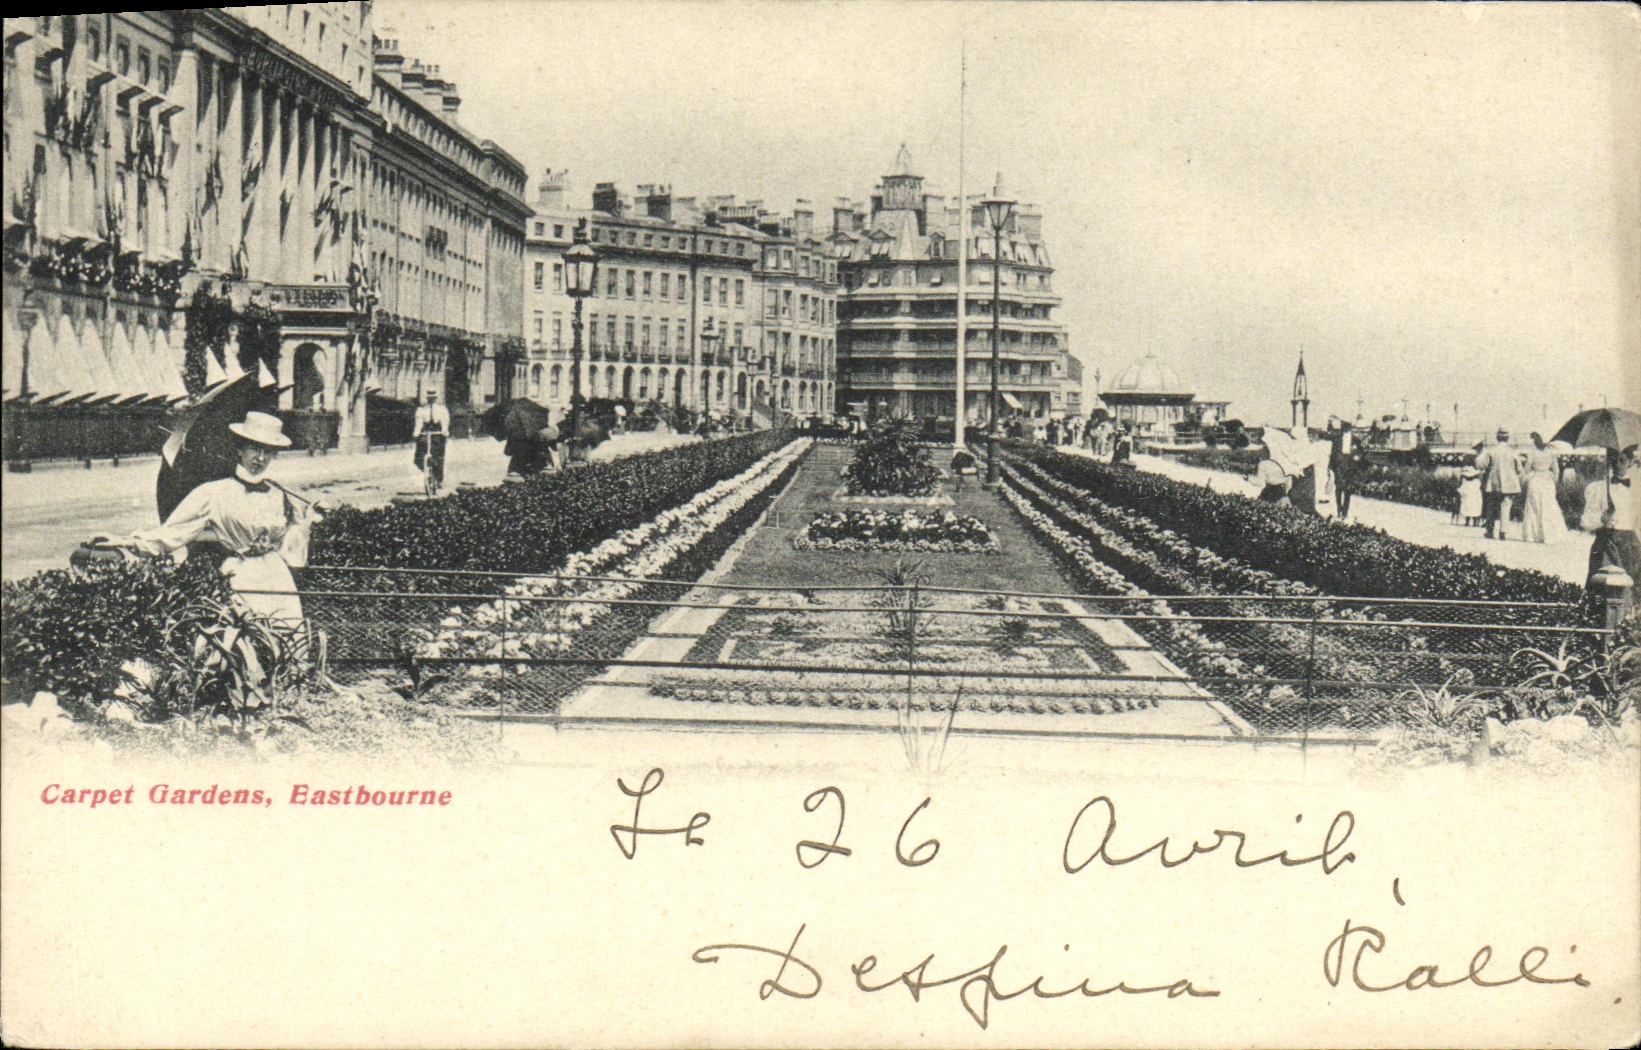 Carpet Gardens, Eastbourne
Le 26 Avril,
Despina Ralli.